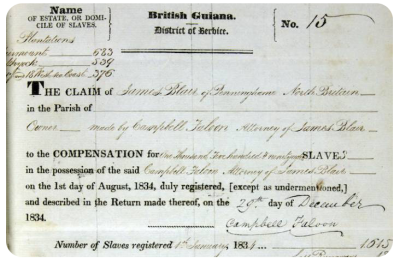 Name
OF ESTATE, OR DOMI-
CILE OF SLAVES.
British Guiana.
District of Berbice.
No. 15
Plantations
683
539
376
THE CLAIM of James Blair of Penninghame North Britain
in the Parish of
Owner made by Campbell Faloon Attorney of James Blair
to the COMPENSATION for One thousand Five hundred & SLAVES
in the possession of the said Campbell Faloon Attorney of James Blair
on the 1st day of August, 1834, duly registered, [except as undermentioned,]
and described in the Return made thereon, on the 29th day of December
1834.
Campbell Faloon
Number of Slaves registered January 183